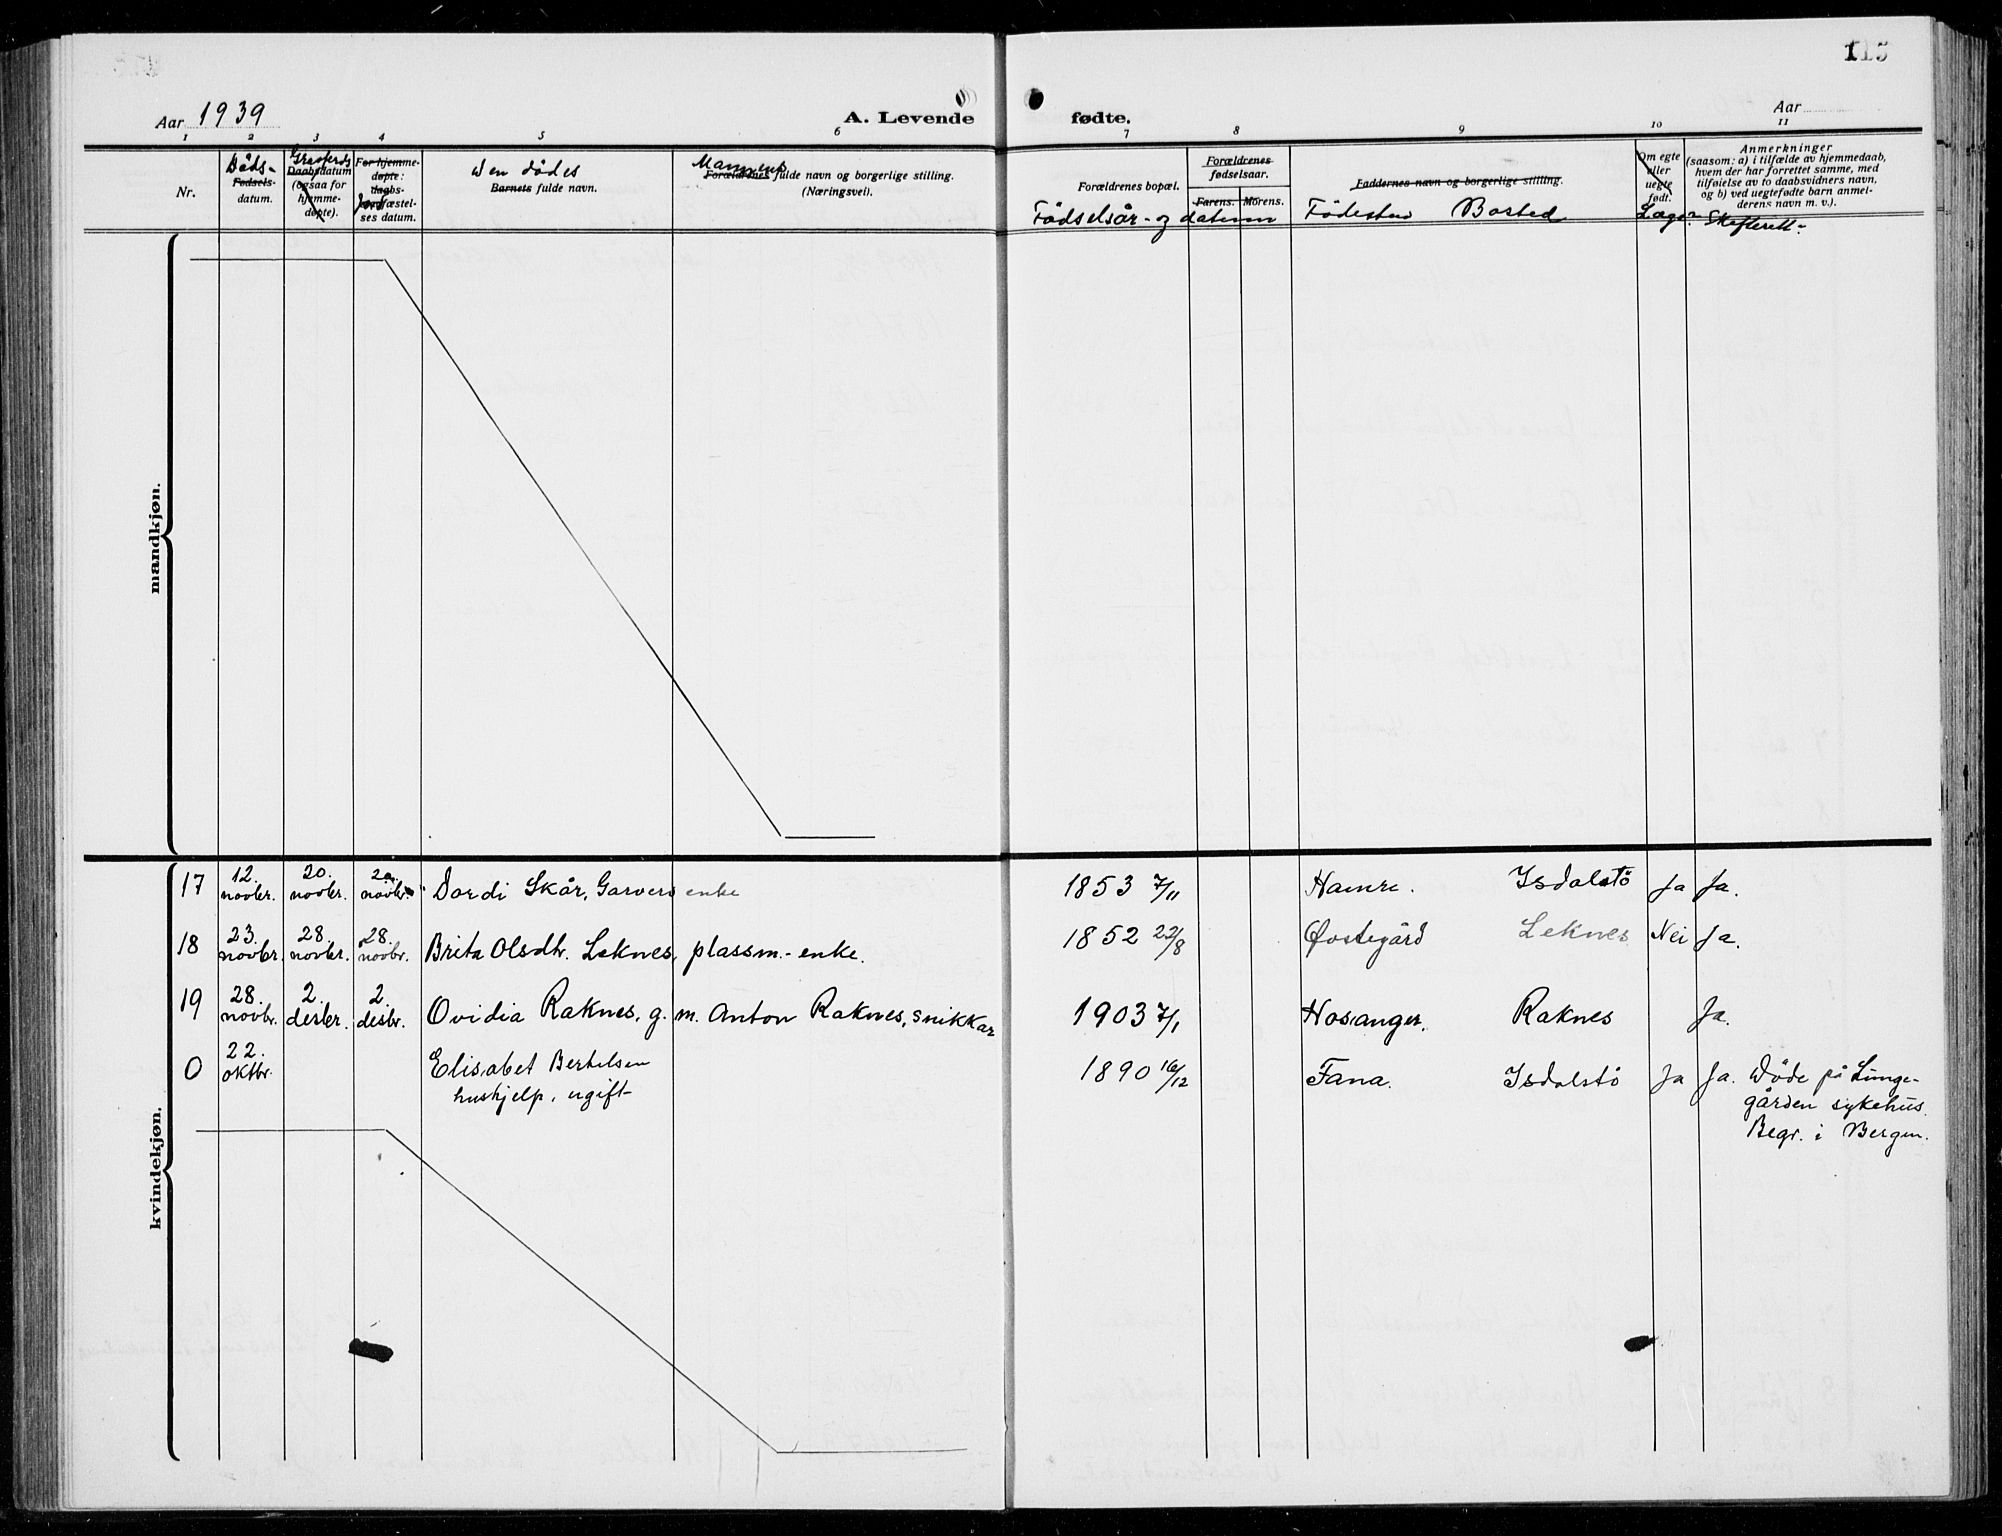 115
Aar 1939
A. Levende fødte.
Aar
1 2 3 4 5 6 7 8 9 10 11
Nr.
Døds-
Fødsels-
datum.
Daabsdatum
(ogsaa for
hjemme-
døpte).
For hjemme-
døpte:
daabs-
stadfæstel-
ses datum.
Den dødes
Barnets fulde navn.
Mannens
Forældrenes fulde navn og borgerlige stilling.
(Næringsvei).
Forældrenes bopæl.
Fødselsår- og datum
Forældrenes
fødselsaar.
Farens. Morens.
Faddernes navn og borgerlige stilling.
Fødested Bosted
Om egte
eller
uegte
født.
Læge.
Anmerkninger
(saasom: a) i tilfælde av hjemmedaab,
hvem der har forrettet samme, med
tilføielse av to daabsvidners navn,
og b) ved uegtefødte barn anmel-
derens navn m. v.).
Skifterett-
mandkjøn.
kvindekjøn.
17 12. novbr. 20. novbr. 20. novbr. Dordi Skår, Garvers enke 1853 7/11 Hamre. Isdalstø Ja Ja.
18 23. novbr. 28. novbr. 28. novbr. Brita Olsdtr. Leknes, plassm.- enke. 1852 22/8 Øvstegård Leknes Nei Ja.
19 28. novbr. 2. desbr. 2. desbr. Ovidia Raknes, g. m. Anton Raknes, snikkar 1903 7/1 Hosanger. Raknes Ja.
0 22. oktbr. Elisabet Bertelsen 1890 16/12 Fana. Isdalstø Ja Ja. Døde på Lunge-
hushjelp, ugift gården sykehus.
Begr. i Bergen.